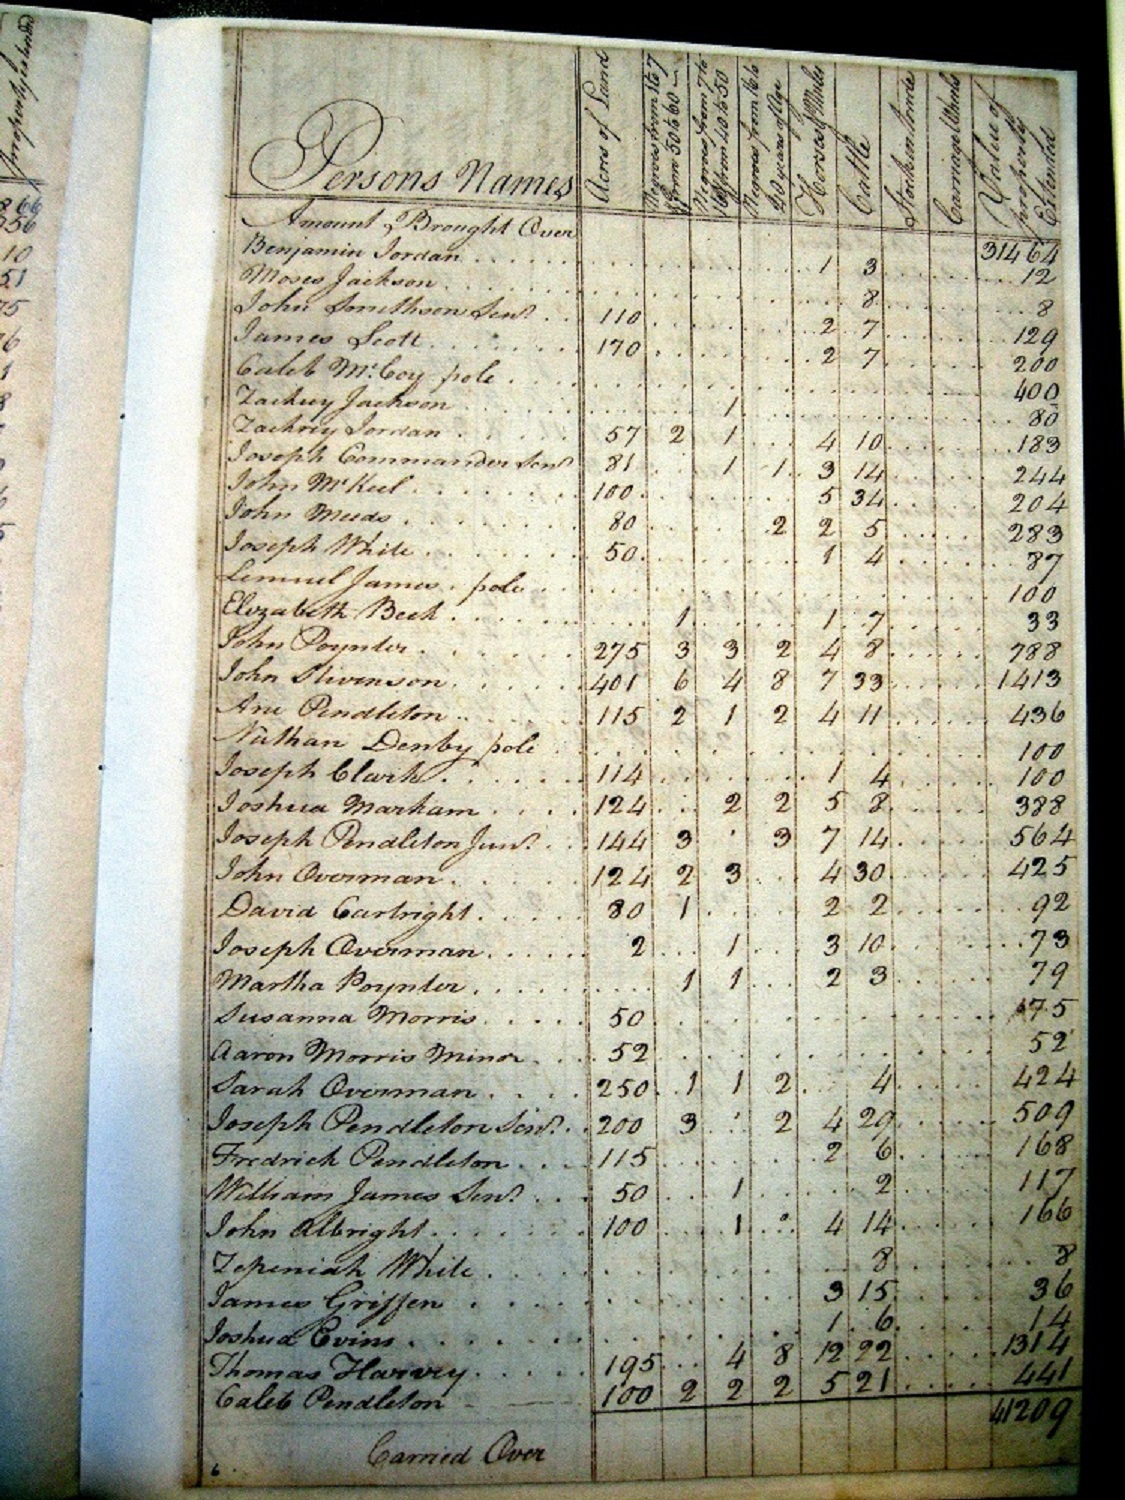 Persons Names | Acres of Land | Negroes from 1 to 7 & from 50 to 60 | Negroes from 7 to 16 & from 40 to 50 | Negroes from 16 to 40 years of Age | Horses & Mules | Cattle | Stock in trade | Carriage Wheels | Value of property Extended
Amount Brought Over 31464
Benjamin Jordan 1 3 12
Moses Jackson 8 8
John Smithson Senr 110 2 7 129
James Scott 170 2 7 200
Caleb McCoy pole 400
Zachrey Jackson 1 80
Zachrey Jordan 57 2 1 4 10 183
Joseph Commander Senr 81 1 1 3 14 244
John McKeel 100 5 34 204
John Meeds 80 2 2 5 283
Joseph White 50 1 4 87
Lemuel James pole 100
Elizabeth Beck 1 1 7 33
John Poynter 275 3 3 2 4 8 788
John Stivenson 401 6 4 8 7 33 1413
Ane Pendleton 115 2 1 2 4 11 436
Nathan Denby pole 100
Joseph Clark 114 1 4 100
Joshua Markam 124 2 2 5 8 388
Joseph Pendleton Junr 144 3 3 7 14 564
John Overman 124 2 3 4 30 425
David Cartright 80 1 2 2 92
Joseph Overman 2 1 3 10 73
Martha Poynter 1 1 2 3 79
Susanna Morris 50 75
Aaron Morris Minor 52 52
Sarah Overman 250 1 1 2 4 424
Joseph Pendleton Senr 200 3 2 4 29 509
Fredrick Pendleton 115 2 6 168
William James Senr 50 1 2 117
John Albright 100 1 4 14 166
Zepeniah White 8 8
James Griffen 3 15 36
Joshua Evins 1 6 14
Thomas Harvey 195 4 8 12 22 1314
Caleb Pendleton 100 2 2 2 5 21 441
41209
Carried Over
6